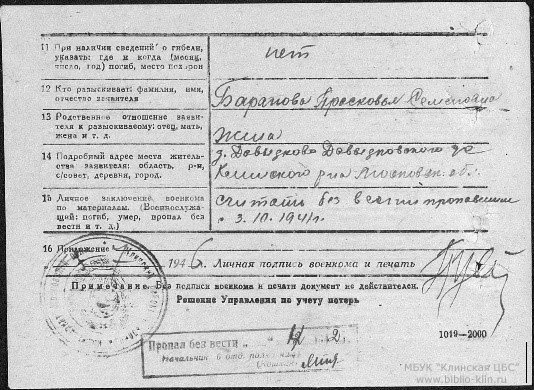 11 При наличии сведений о гибели,
указать: где и когда (месяц,
число, год) погиб, место похорон
нет
12 Кто разыскивает: фамилия, имя,
отчество заявителя
Баранова Просковья Семеновна
13 Родственное отношение заявителя
к разыскиваемому: отец, мать,
жена и т. д.
жена
14 Подробный адрес места жительства
заявителя: область, р-н,
с/совет, деревня, город.
д. Давыдково Давыдковского с/с
Клинского р-на Московск. обл.
15 Личное заключение военкома
по материалам. (Военнослужащий:
погиб, умер, пропал без
вести и т. д.)
считать без вести пропавшим
с 3.10.1941г.
16 Приложение
1946 г. Личная подпись военкома и печать
Примечание. Без подписи военкома и печати документ не действителен.
Решение Управления по учету потерь
Пропал без вести
Начальник 6 отд.
1019—2000
МБУК "Клинская ЦБС"
www.biblio-klin.ru